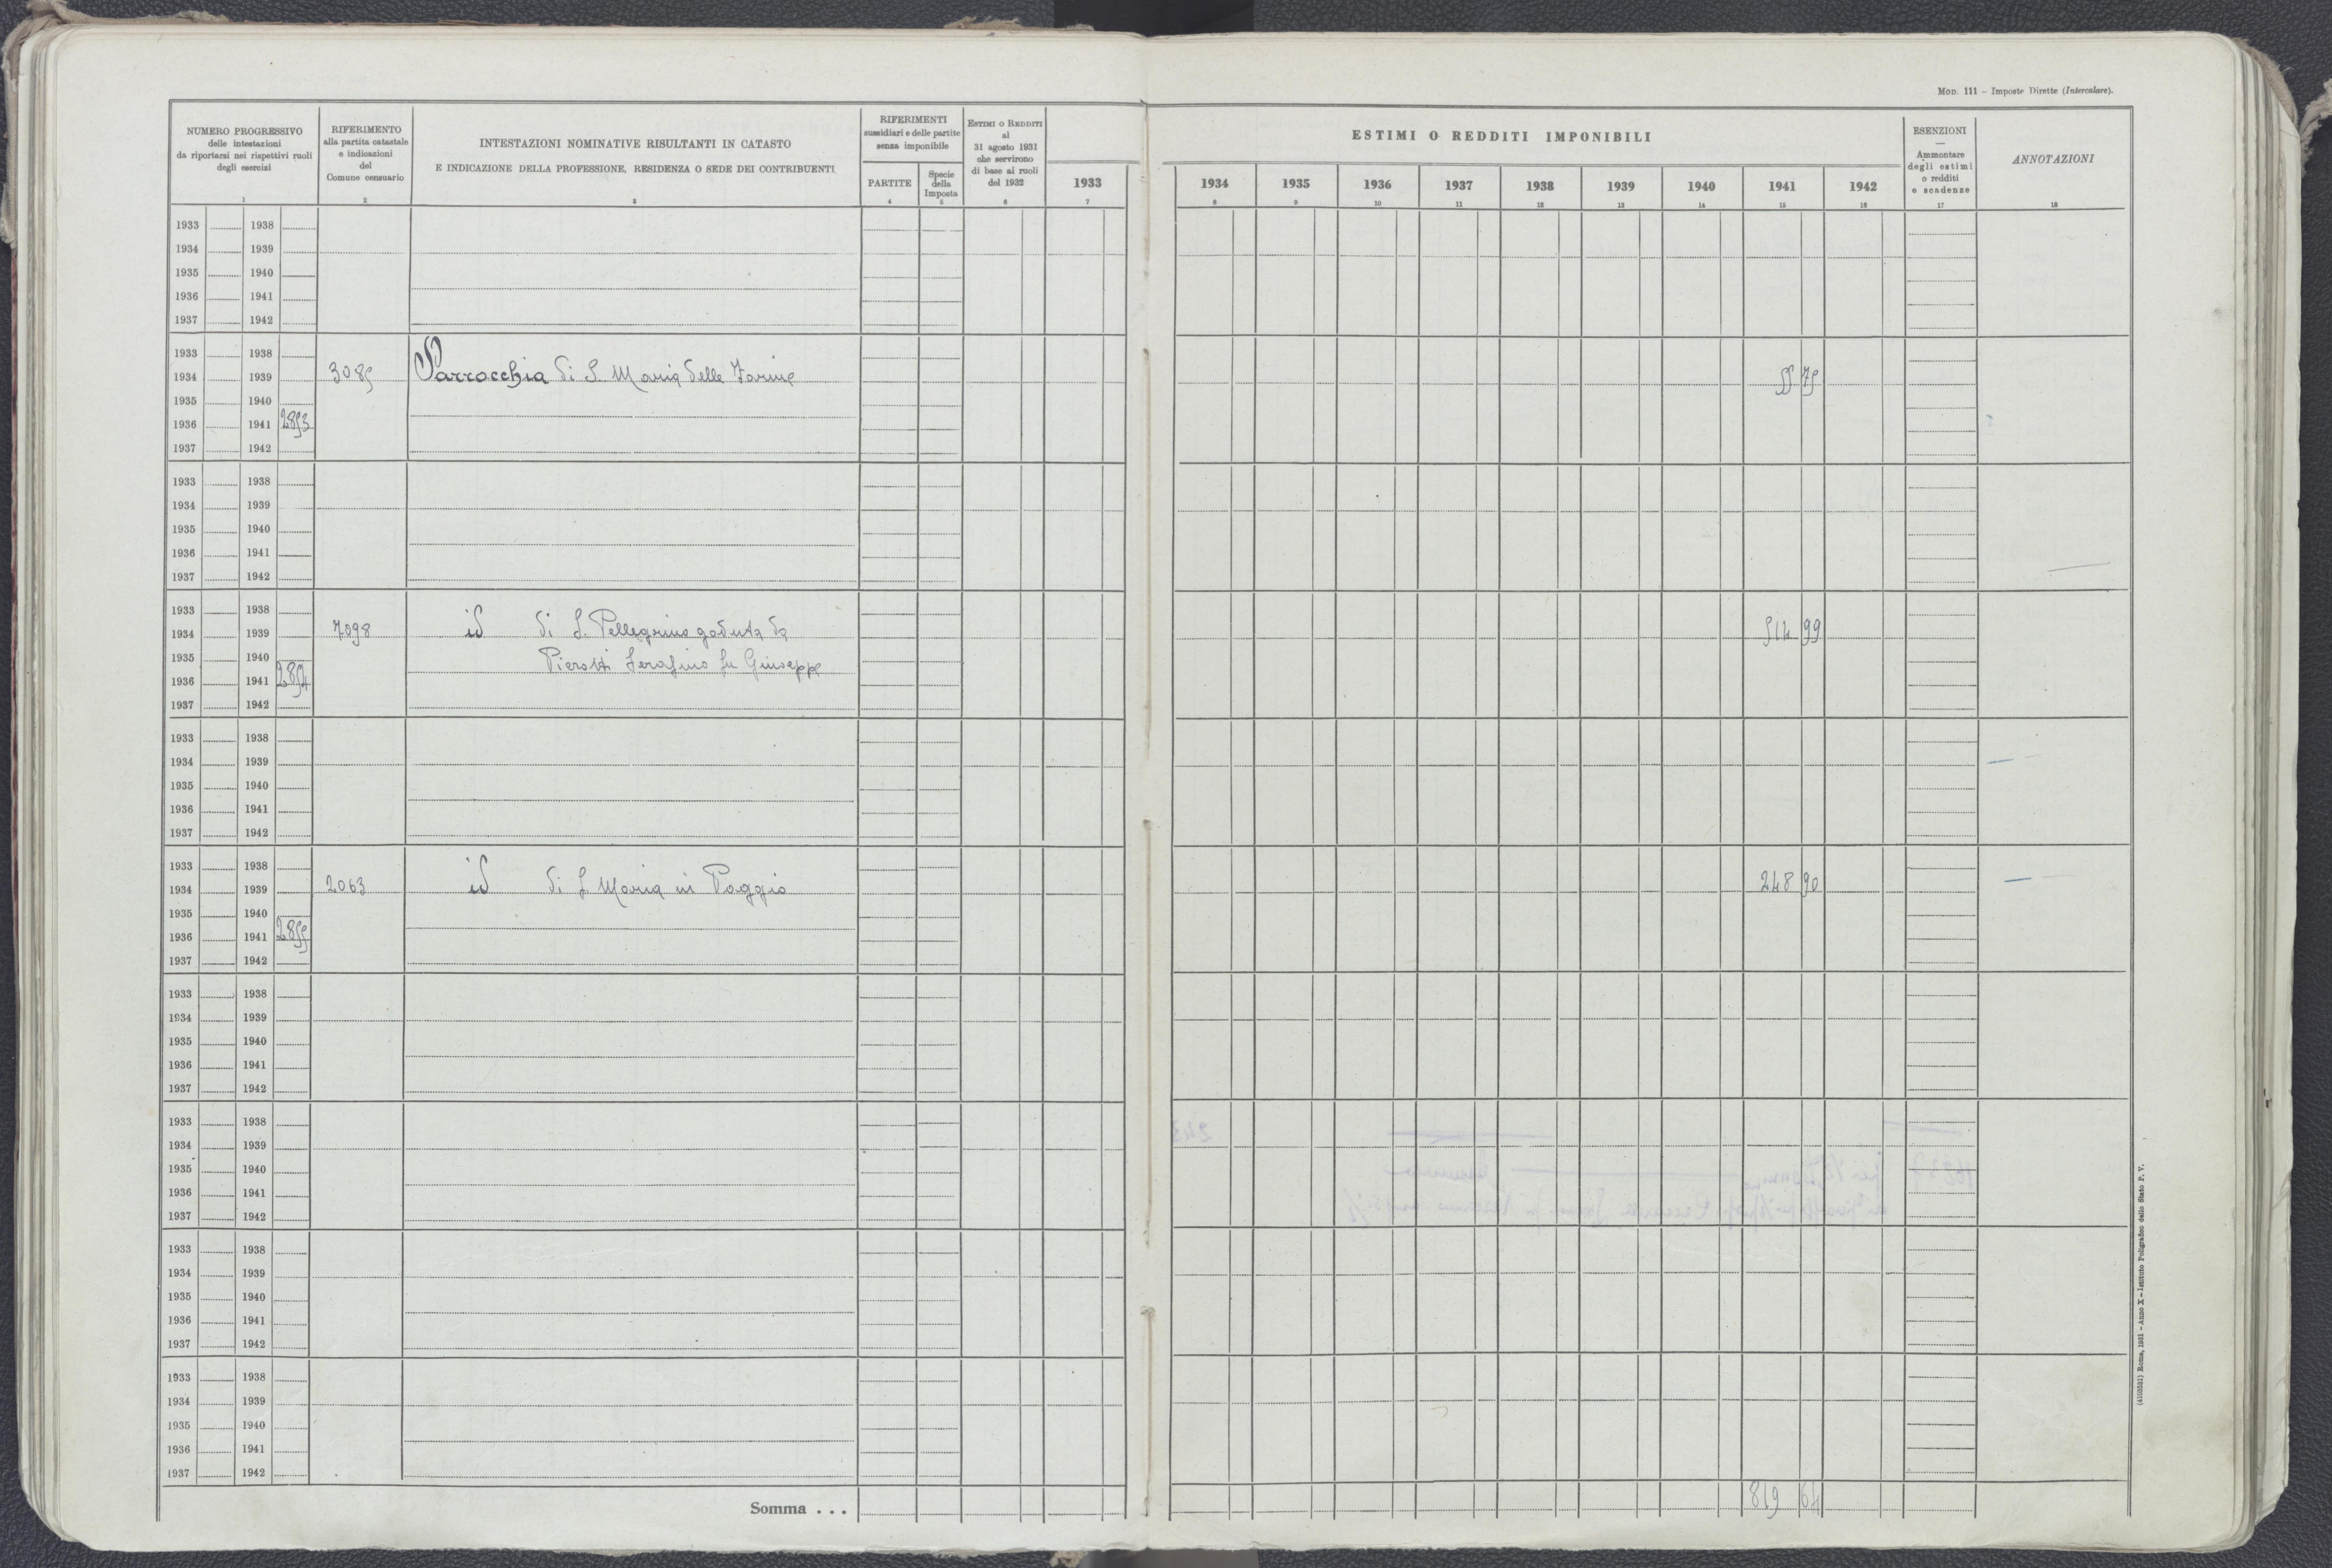 Mod. 111 – Imposte Dirette (Intercalare).
NUMERO PROGRESSIVO
delle intestazioni
da riportarsi nei rispettivi ruoli
degli esercizi
1
RIFERIMENTO
alla partita catastale
e indicazioni
del
Comune censuario
2
INTESTAZIONI NOMINATIVE RISULTANTI IN CATASTO
E INDICAZIONE DELLA PROFESSIONE, RESIDENZA O SEDE DEI CONTRIBUENTI
3
RIFERIMENTI
sussidiari e delle partite
senza imponibile
PARTITE
4
Specie
della
Imposta
5
Estimi o Redditi
al
31 agosto 1931
che servirono
di base ai ruoli
del 1932
6
1933
7
ESTIMI O REDDITI IMPONIBILI
1934 1935 1936 1937 1938 1939 1940 1941 1942
8 9 10 11 12 13 14 15 16
ESENZIONI
—
Ammontare
degli estimi
o redditi
e scadenze
17
ANNOTAZIONI
18
1933 1938
1934 1939
1935 1940
1936 1941
1937 1942
1933 1938
1934 1939 3085 Parrocchia di S. Maria delle Farine 55 75
1935 1940
1936 1941 2853
1937 1942
1933 1938
1934 1939
1935 1940
1936 1941
1937 1942
1933 1938
1934 1939 7098 id di S. Pellegrino goduta da 514 99
1935 1940 Pierotti Serafino fu Giuseppe
1936 1941 2854
1937 1942
1933 1938
1934 1939
1935 1940
1936 1941
1937 1942
1933 1938
1934 1939 2063 id di S. Maria in Poggio 248 90
1935 1940
1936 1941 2855
1937 1942
1933 1938
1934 1939
1935 1940
1936 1941
1937 1942
1933 1938
1934 1939
1935 1940
1936 1941
1937 1942
1933 1938
1934 1939
1935 1940
1936 1941
1937 1942
1933 1938
1934 1939
1935 1940
1936 1941
1937 1942
Somma . . . 819 64
(4103551) Roma, 1931 – Anno X – Istituto Poligrafico dello Stato P. V.